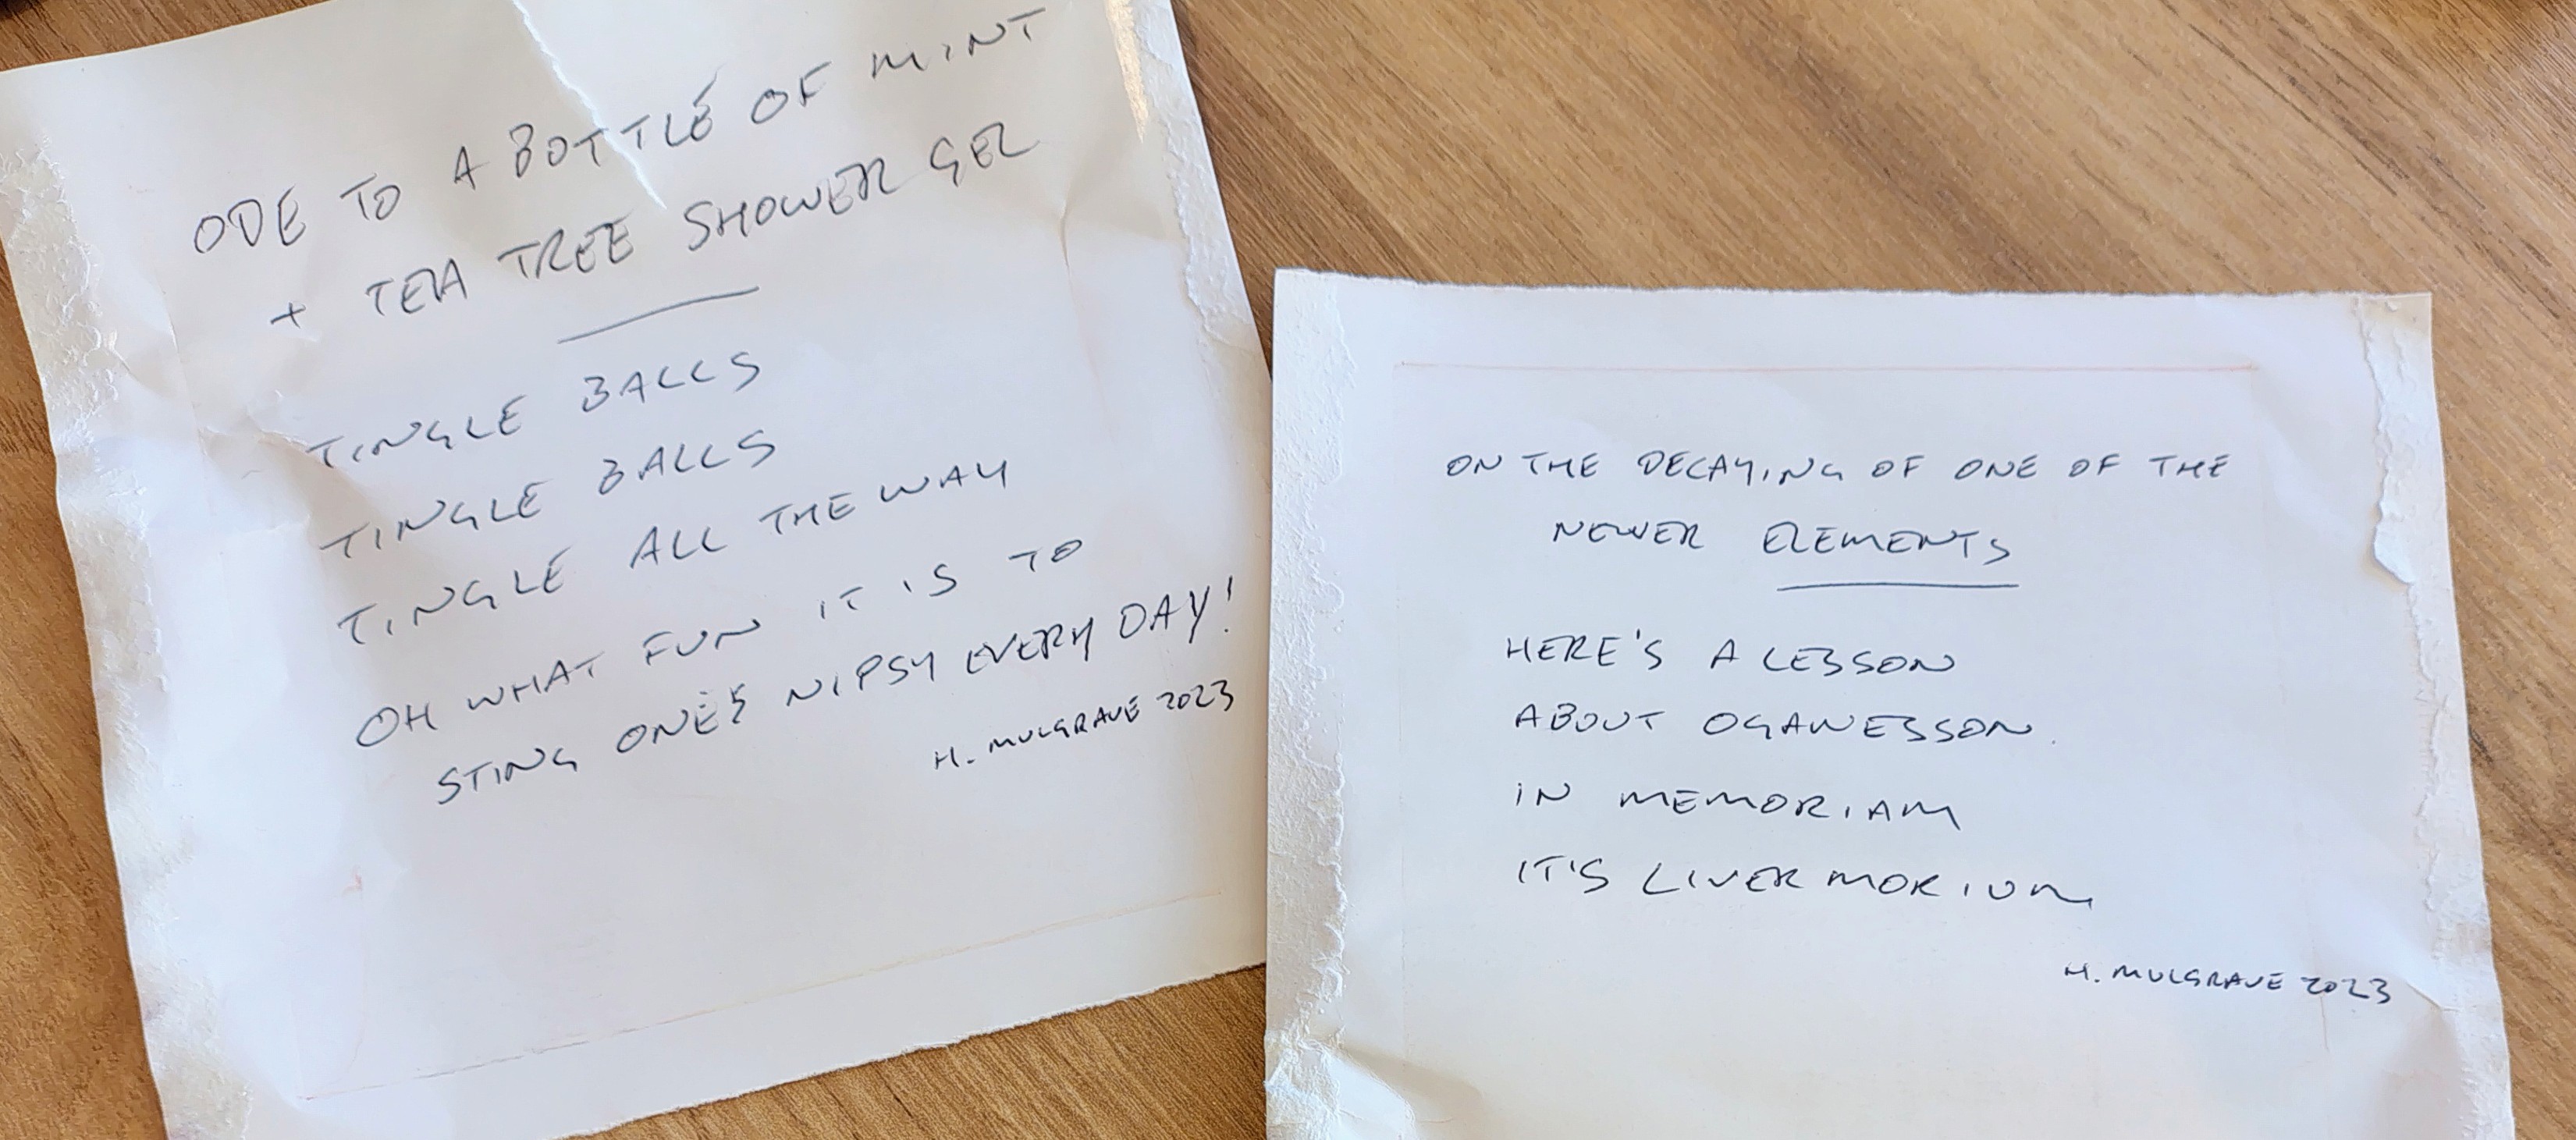 ODE TO A BOTTLE OF MINT
+ TEA TREE SHOWER GEL
TINGLE BALLS
TINGLE BALLS
TINGLE ALL THE WAY
OH WHAT FUN IT IS TO
STING ONE'S NIPSY EVERY DAY!
H. MULGRAVE 2023
ON THE DECAYING OF ONE OF THE
NEWER ELEMENTS
HERE'S A LESSON
ABOUT OGANESSON.
IN MEMORIAM
IT'S LIVERMORIUM
H. MULGRAVE 2023